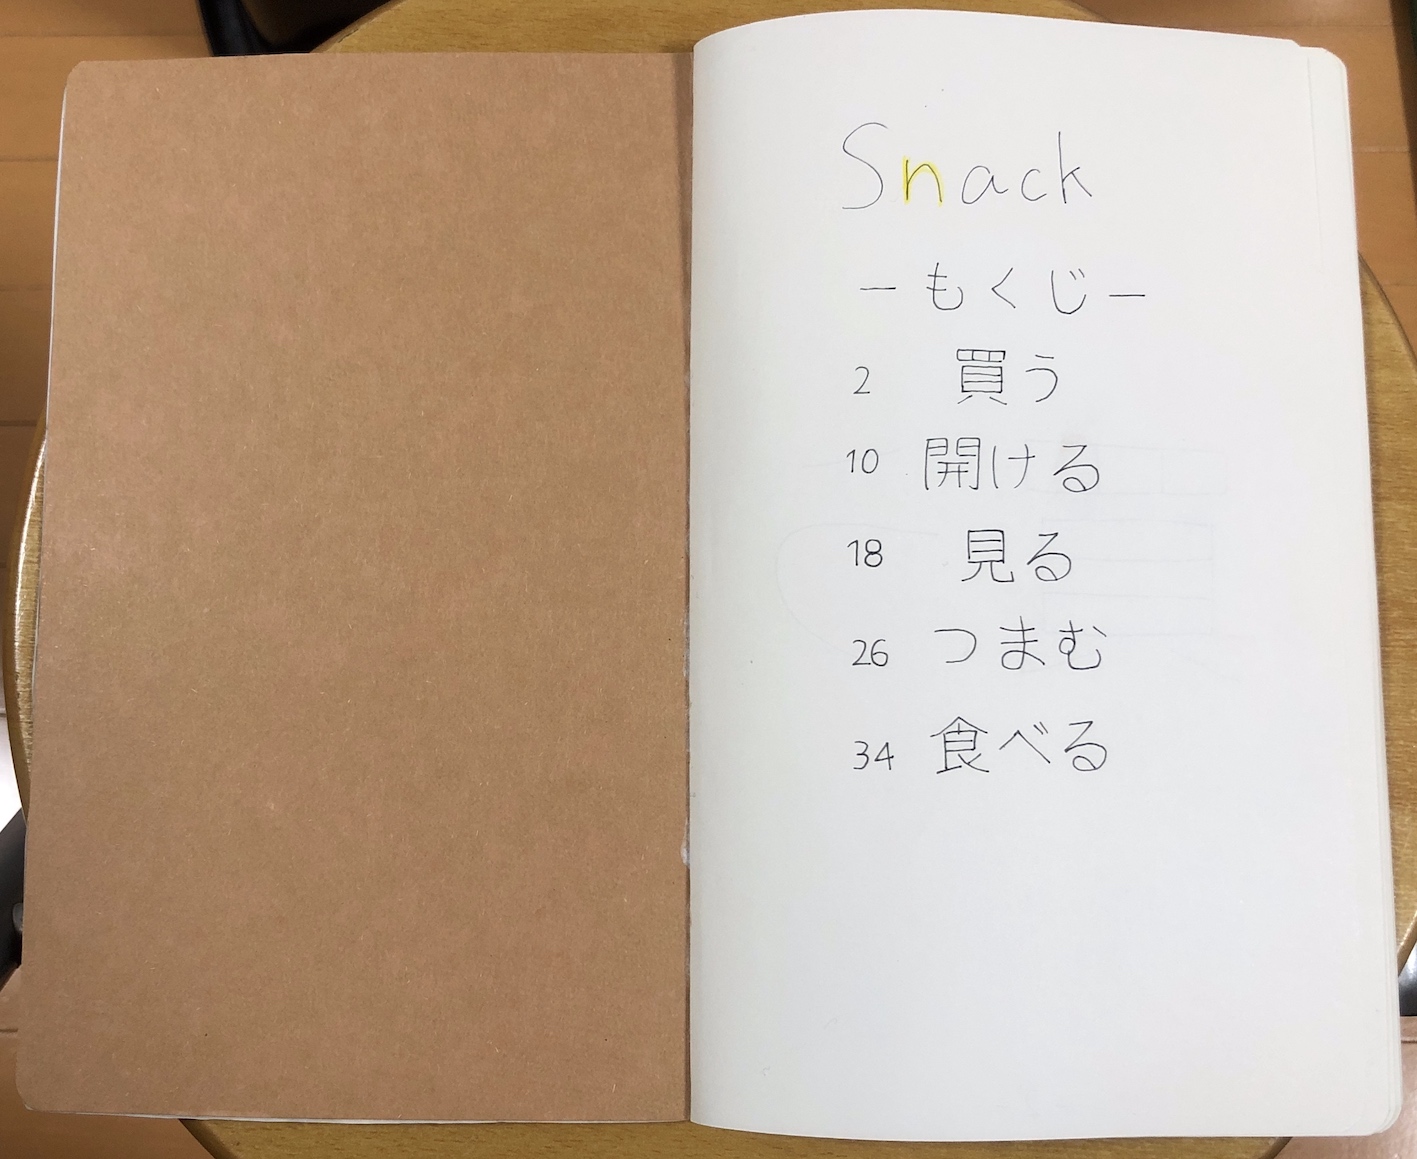 Snack
－もくじ－
2 買う
10 開ける
18 見る
26 つまむ
34 食べる